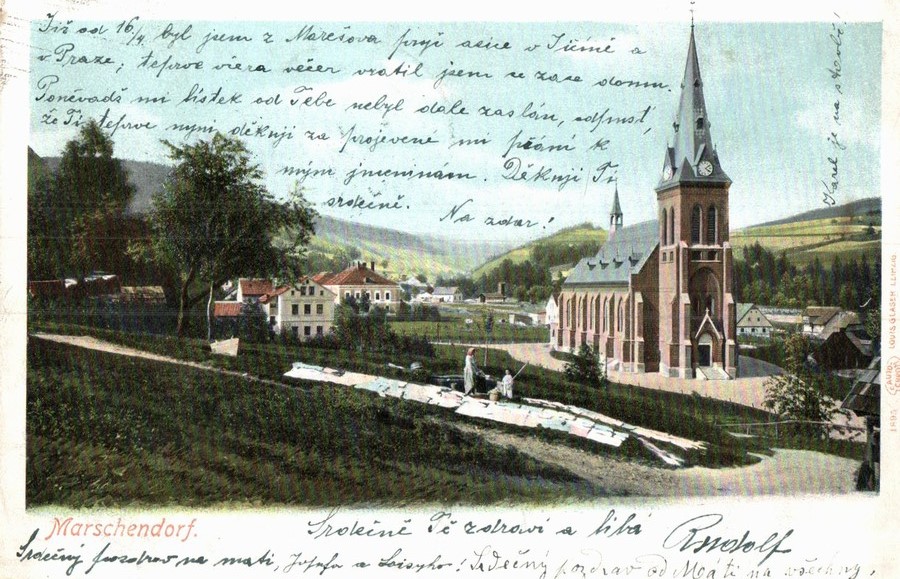 Již od 16/4 byl jsem z Marešova pryč asice v Jičíně a
v Praze; teprve včera večer vratil jsem se zase domu.
Poněvadž mi lístek od Tebe nebyl dale zaslán, odpusť,
že Ti teprve nyni děkuji za projevené mi přání k
mým jmeninám. Děkuji Ti
srdečně.
Na zdar!
Karel je na
Marschendorf.
Srdečně Tě zdraví a líbá Rudolf
Srdečny pozdrav na mati, Josefa a Loisyho! Srdečný pozdrav od Máti na všechny.
LOUIS GLASER LEIPZIG.
AUTO